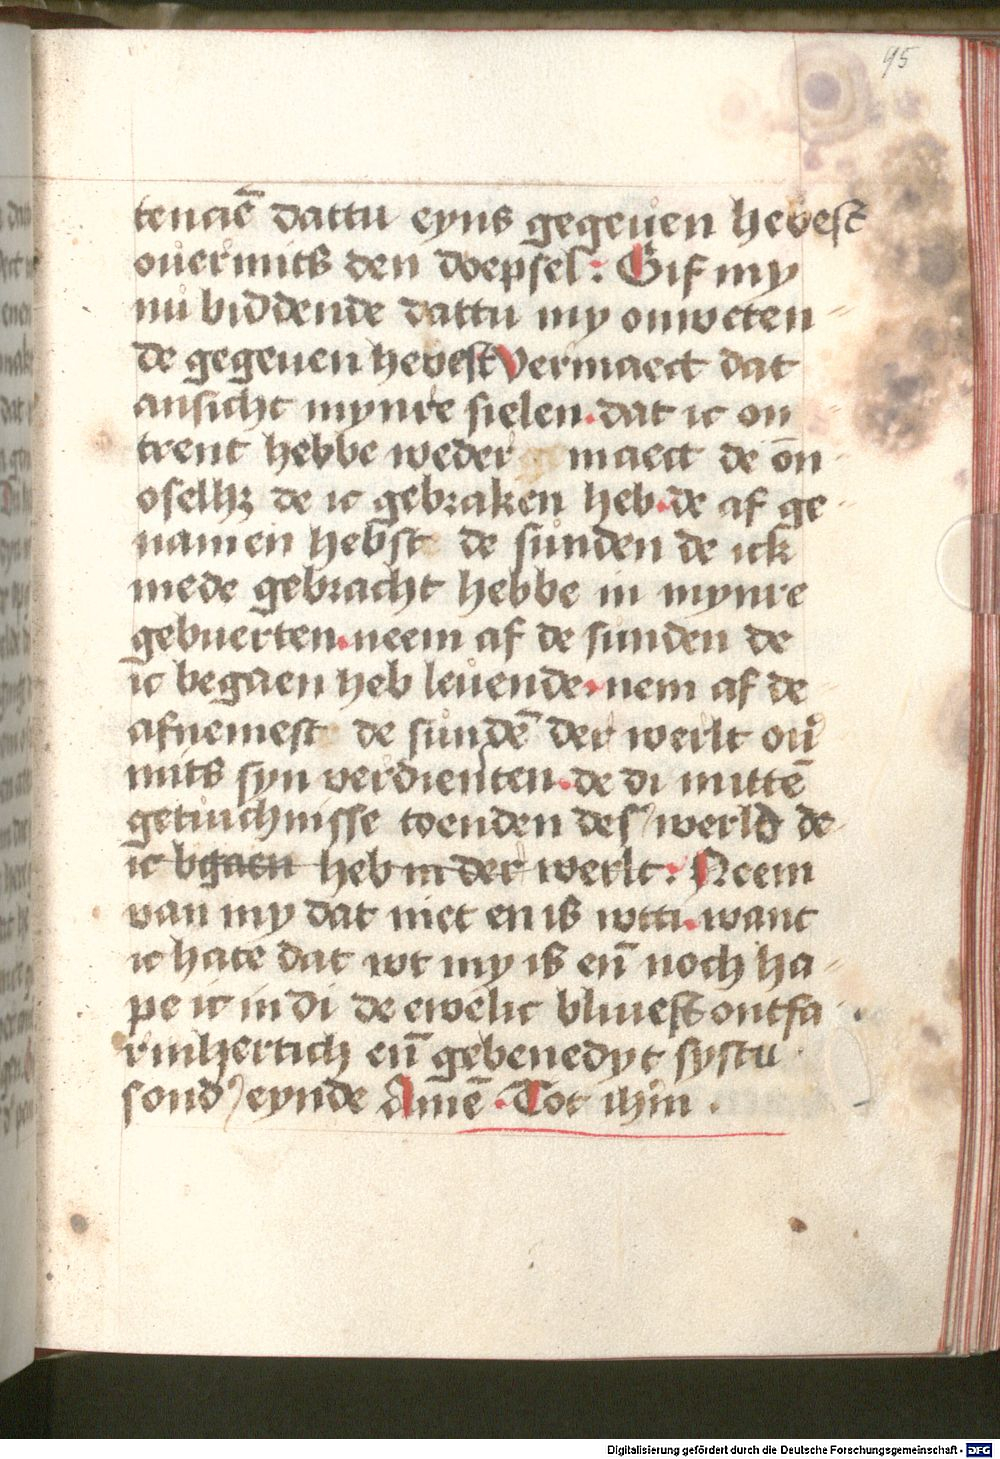 95
tenciē dattu eyns gegeuen hevest
ouermits den doepsel : Gif my
nu biddende dattu my onweten
de gegeuen hevest Vermaect dat
ansicht mynre sielen . dat ic on
trent hebbe weder maect de ōn
oselhz de ic gebraken heb . de af ge
namen hebst de sunden de ick
mede gebracht hebbe in mynre
gebuerten . neem af de sunden de
ic begaen heb leuende . nem af de
afnemest de sundē der werlt
mits syn verdiensten . de di mittē
getuichnisse toenden des werld de
ic bgaen heb in der werlt : Neem
van my dat niet en is wtti . want
ic hate dat wt my is eñ noch ha
pe ic in di de ewelic bliuest ontfa
eñ gebenedyt systu
sond' eynde Amē . Tot ihm .
Digitalisierung gefördert durch die Deutsche Forschungsgemeinschaft - DFG